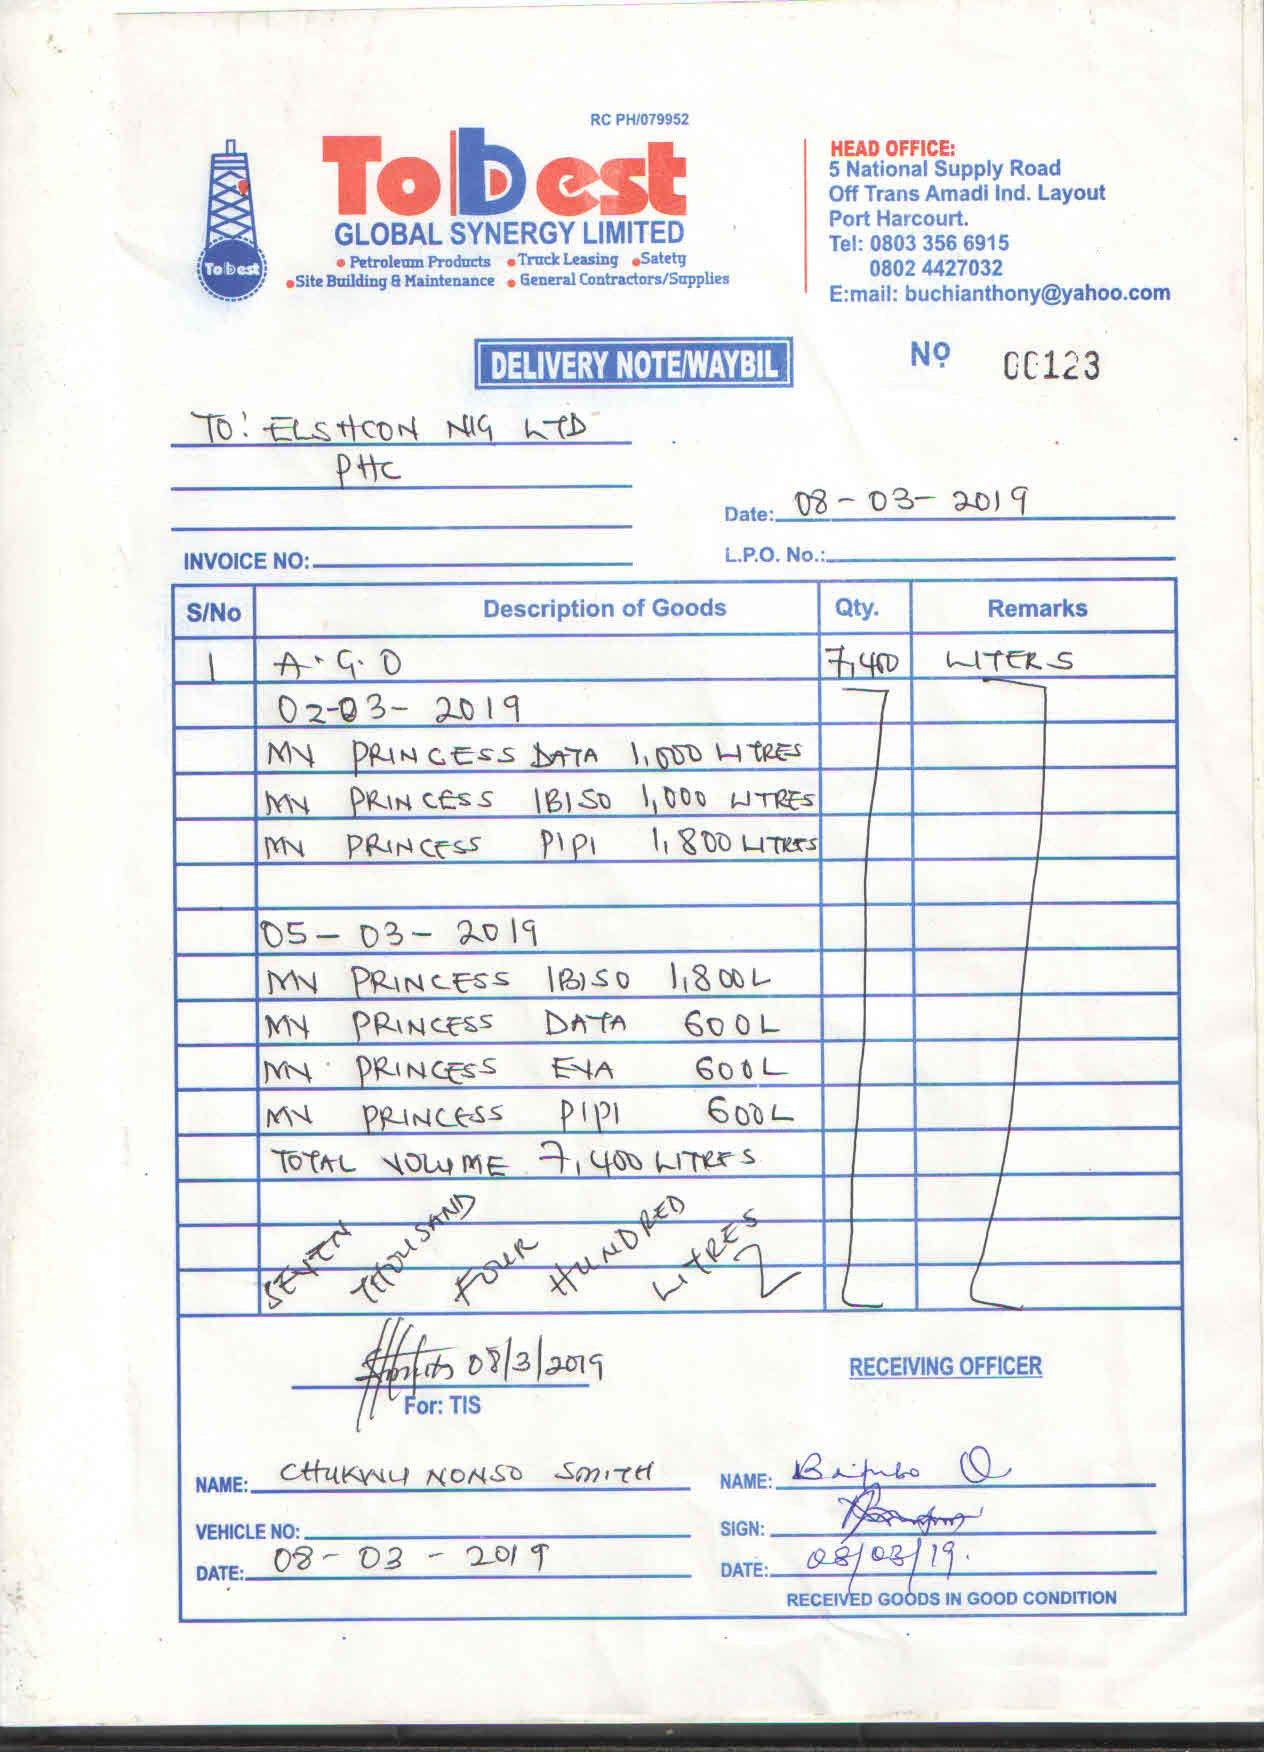 RC PH/079952
Tobest
GLOBAL SYNERGY LIMITED
• Petroleum Products • Truck Leasing • Safety
• Site Building & Maintenance • General Contractors/Supplies
Tobest
HEAD OFFICE:
5 National Supply Road
Off Trans Amadi Ind. Layout
Port Harcourt.
Tel: 0803 356 6915
0802 4427032
E:mail: buchianthony@yahoo.com
DELIVERY NOTE/WAYBIL
No 00123
TO: ELSHCON NIG LTD
PHC
Date: 08-03-2019
INVOICE NO:
L.P.O. No.:
S/No Description of Goods Qty. Remarks
1 A.G.O 7,400 LITERS
02-03-2019
MV PRINCESS DATA 1,000 LITRES
MV PRINCESS IBISO 1,000 LITRES
MV PRINCESS PIPI 1,800 LITRES
05-03-2019
MV PRINCESS IBISO 1,800L
MV PRINCESS DATA 600L
MV PRINCESS EVA 600L
MV PRINCESS PIPI 600L
TOTAL VOLUME 7,400 LITRES
SEVEN THOUSAND FOUR HUNDRED LITRES
08/3/2019
For: TIS
RECEIVING OFFICER
NAME: CHUKWU NONSO SMITH
NAME: O
VEHICLE NO:
SIGN:
DATE: 08-03-2019
DATE: 08/03/19.
RECEIVED GOODS IN GOOD CONDITION